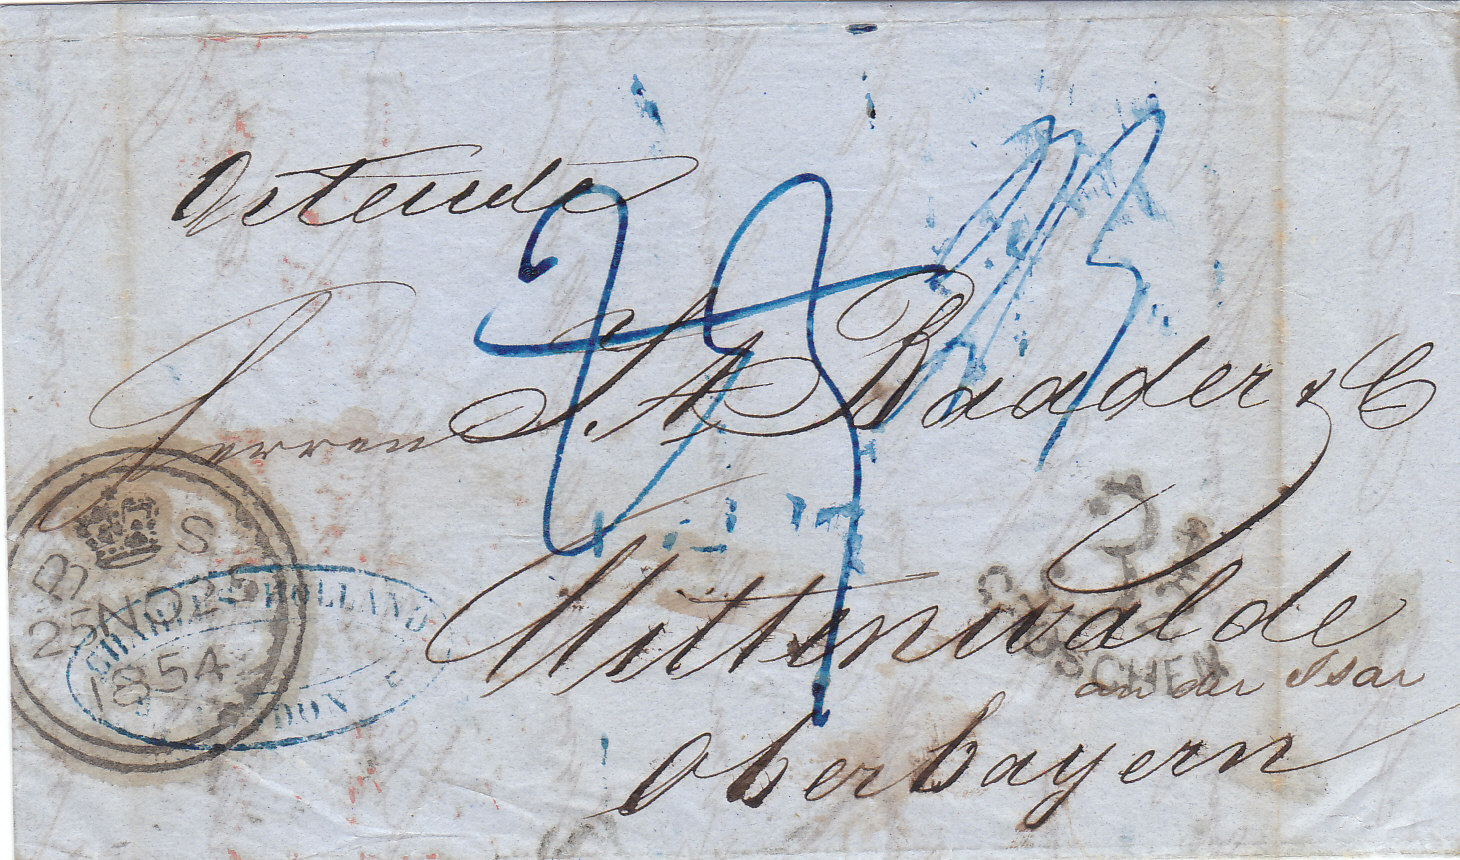 Ostende
Herren J. A. Baader & C
Mittenwalde
an der Isar
Oberbayern
B S
25 NO 25
1854
HOLLAND
23